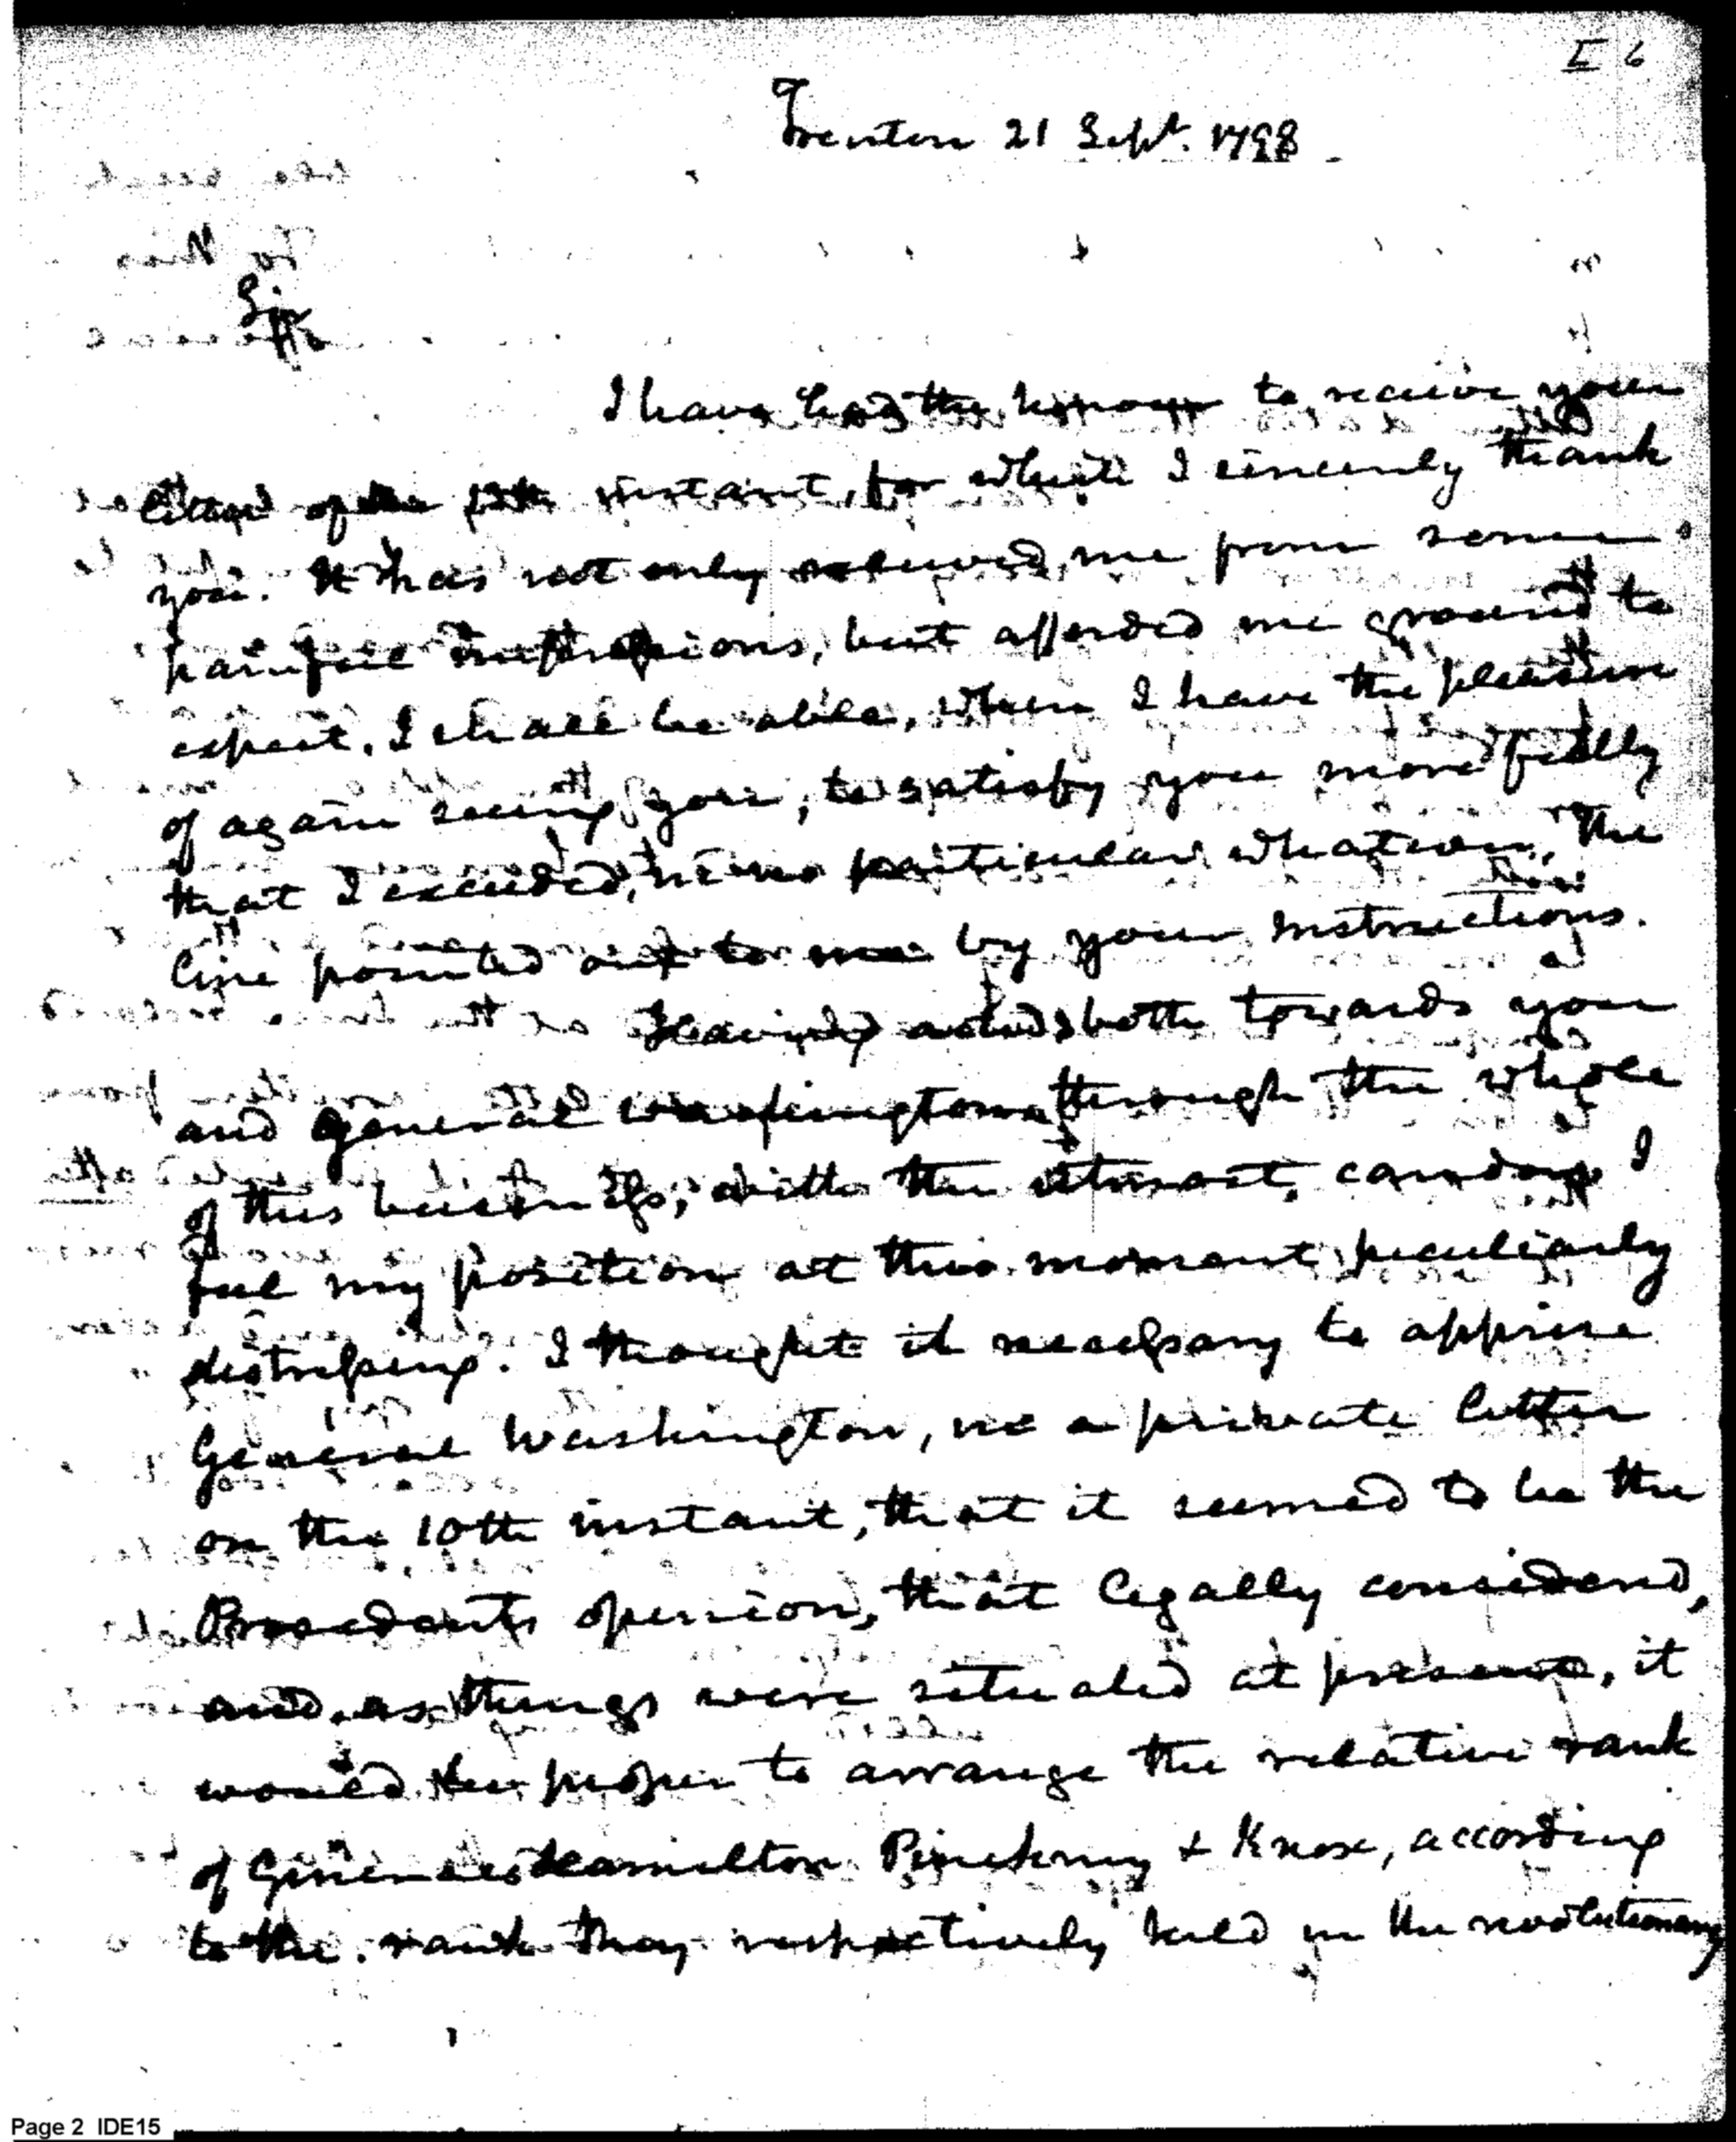 I 6
Trenton 21 Sept. 1798.
Sir
I have had the honour to receive your
letter of the 13th instant, for which I sincerely thank
you. It has not only relieved me from some
painful impressions, but afforded me ground to
expect, I shall be able, when I have the pleasure
of again seeing you, to satisfy you more fully
that I exceeded, in no particular whatever, the
line pointed out to me by your Instructions.
Having acted both towards you
and General Washington through the whole
of this business, with the utmost candour I
feel my position at this moment peculiarly
distressing. I thought it necessary to apprise
General Washington, in a private letter
on the 10th instant, that it seemed to be the
Presidents opinion, that legally considered,
and as things were situated at present, it
would be proper to arrange the relative rank
of Generals Hamilton Pinckney & Knox, according
to the rank they respectively held in the revolutionary
Page 2 IDE15